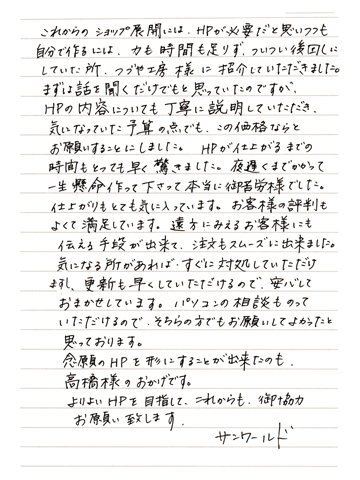 これからのショップ展開には、HPが必要だと思いつつも
自分で作るには、力も時間も足りず、ついつい後回しに
していた所、つづや工房様に紹介していただきました。
まずは話を聞くだけでもと思っていたのですが、
HPの内容についても丁寧に説明していただき、
気になっていた予算の点でも、この価格ならと
お願いすることにしました。HPが仕上がるまでの
時間もとっても早く驚きました。夜遅くまでかかって
一生懸命作って下さって本当に御苦労様でした。
仕上がりもとても気に入っています。お客様の評判も
よくて満足しています。遠方にみえるお客様にも
伝える手段が出来て、注文もスムーズに出来ました。
気になる所があれば、すぐに対処していただけ
ますし、更新も早くしていただけるので、安心して
おまかせしています。パソコンの相談ものって
いただけるので、そちらの方でもお願いしてよかったと
思っております。
念願のHPを形にすることが出来たのも、
高橋様のおかげです。
よりよいHPを目指して、これからも、御協力
お願い致します。
サンワールド